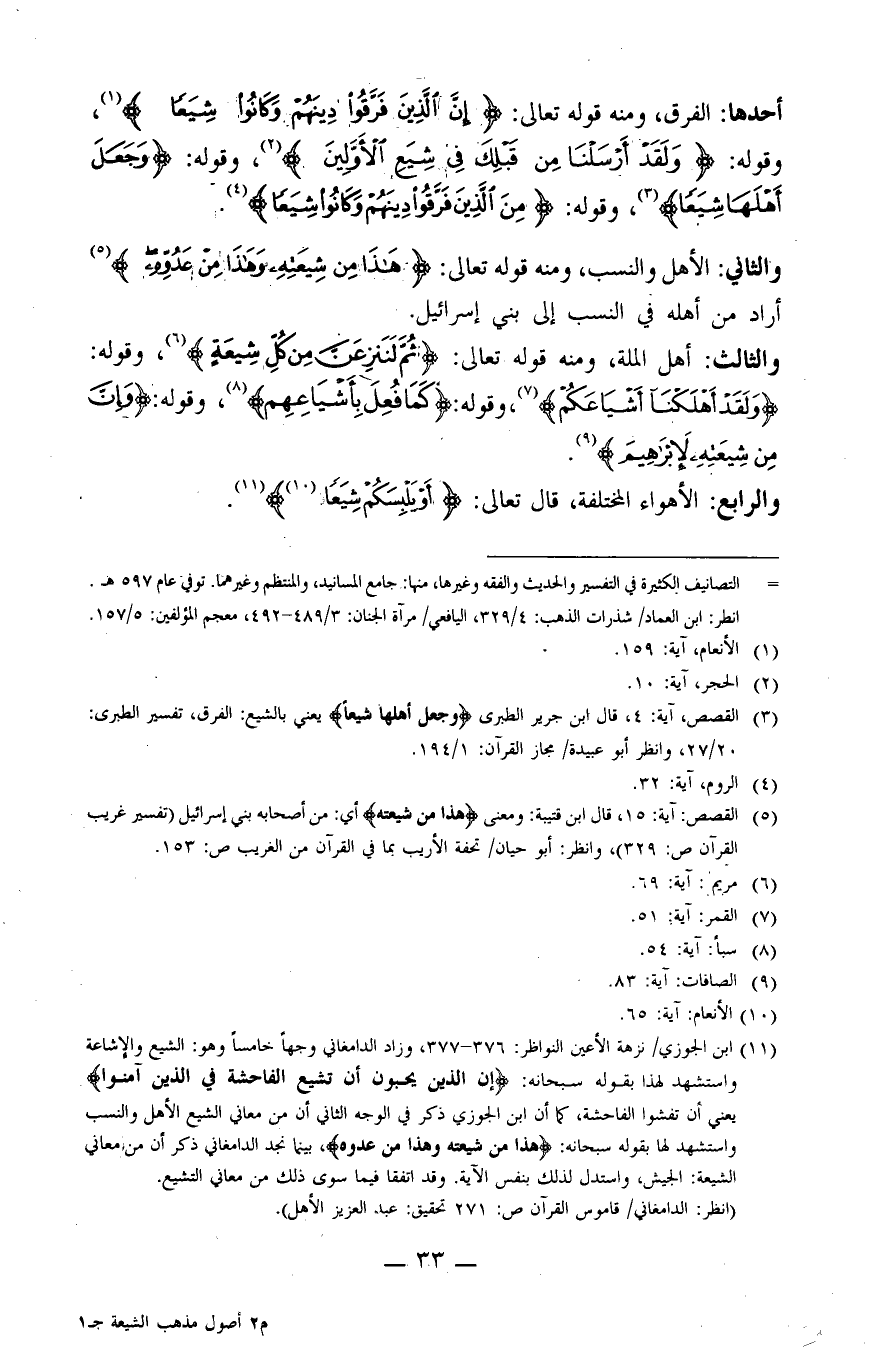 أحدها: الفرق، ومنه قوله تعالى: ﴿ إِنَّ ٱلَّذِينَ فَرَّقُوا۟ دِينَهُمْ وَكَانُوا۟ شِيَعًا ﴾(١)،
وقوله: ﴿ وَلَقَدْ أَرْسَلْنَا مِن قَبْلِكَ فِى شِيَعِ ٱلْأَوَّلِينَ ﴾(٢)، وقوله: ﴿وَجَعَلَ
أَهْلَهَا شِيَعًا﴾(٣)، وقوله: ﴿ مِنَ ٱلَّذِينَ فَرَّقُوا۟ دِينَهُمْ وَكَانُوا۟ شِيَعًا ﴾(٤).
والثاني: الأهل والنسب، ومنه قوله تعالى: ﴿ هَٰذَا مِن شِيعَتِهِۦ وَهَٰذَا مِنْ عَدُوِّهِۦ ﴾(٥)
أراد من أهله في النسب إلى بني إسرائيل.
والثالث: أهل الملة، ومنه قوله تعالى: ﴿ثُمَّ لَنَنزِعَنَّ مِن كُلِّ شِيعَةٍ ﴾(٦)، وقوله:
﴿وَلَقَدْ أَهْلَكْنَآ أَشْيَاعَكُمْ﴾(٧)، وقوله: ﴿كَمَا فُعِلَ بِأَشْيَاعِهِم﴾(٨)، وقوله: ﴿وَإِنَّ
مِن شِيعَتِهِۦ لَإِبْرَٰهِيمَ ﴾(٩).
والرابع: الأهواء المختلفة، قال تعالى: ﴿ أَوْ يَلْبِسَكُمْ شِيَعًا (١٠)﴾(١١).
= التصانيف الكثيرة في التفسير والحديث والفقه وغيرها، منها: جامع المسانيد، والمنتظم وغيرهما. توفي عام ٥٩٧ هـ .
انظر: ابن العماد/ شذرات الذهب: ٣٢٩/٤، اليافعي/ مرآة الجنان: ٤٨٩/٣–٤٩٢، معجم المؤلفين: ١٥٧/٥.
(١) الأنعام، آية: ١٥٩.
(٢) الحجر، آية: ١٠.
(٣) القصص، آية: ٤، قال ابن جرير الطبرى ﴿وجعل أهلها شيعاً﴾ يعني بالشيع: الفرق، تفسير الطبرى:
٢٧/٢٠، وانظر أبو عبيدة/ مجاز القرآن: ١٩٤/١.
(٤) الروم، آية: ٣٢.
(٥) القصص: آية: ١٥، قال ابن قتيبة: ومعنى ﴿هذا من شيعته﴾ أي: من أصحابه بني إسرائيل (تفسير غريب
القرآن ص: ٣٢٩)، وانظر: أبو حيان/ تحفة الأريب بما في القرآن من الغريب ص: ١٥٣.
(٦) مريم: آية: ٦٩.
(٧) القمر: آية: ٥١.
(٨) سبأ: آية: ٥٤.
(٩) الصافات: آية: ٨٣.
(١٠) الأنعام: آية: ٦٥.
(١١) ابن الجوزي/ نزهة الأعين النواظر: ٣٧٦–٣٧٧، وزاد الدامغاني وجهاً خامساً وهو: الشيع والإشاعة
واستشهد لهذا بقوله سبحانه: ﴿إن الذين يحبون أن تشيع الفاحشة في الذين آمنوا﴾
يعني أن تفشوا الفاحشة، كما أن ابن الجوزي ذكر في الوجه الثاني أن من معاني الشيع الأهل والنسب
واستشهد لها بقوله سبحانه: ﴿هذا من شيعته وهذا من عدوه﴾، بينما نجد الدامغاني ذكر أن من معاني
الشيعة: الجيش، واستدل لذلك بنفس الآية. وقد اتفقا فيما سوى ذلك من معاني التشيع.
(انظر: الدامغاني/ قاموس القرآن ص: ٢٧١ تحقيق: عبد العزيز الأهل).
— ٣٣ —
م٢ أصول مذهب الشيعة جـ١